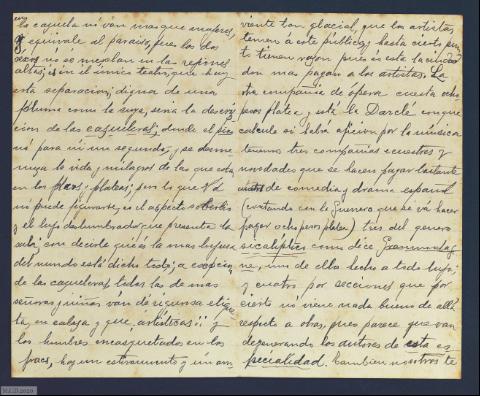 la cazuela ni van mas que mujeres,
y equivale al paraiso, pues los dos
sexos no se mezclan en la regiones
altas, y es en el unico teatro, que hay
esta separacion; digna de una
pluma como la suya, seria la descrip
cion de las cazueleras, donde el pico
no para ni un segundo, y se desme
nuza la vida y milagros de las que estan
en los palcos y plateas; pero lo que Vd
ni puede figurarse, es el aspecto soberbio
y el lujo deslumbrador, que presenta la
sala; con decirle que es la mas lujosa
del mundo está dicho todo; a excepcion
de las cazueleras, todas las de mas
señoras y niñas van de rigurosa etique
ta, en cabeza y que, artísticas!! y
los hombres encasquetados en los
fracs, hay un estiramiento y un am
viente tan glacial, que los artistas
temen á este público, y hasta cierto pun
to tienen razon pues es esta la ciudad
don mas pagan a los artistas. La
otra compañia de opera cuesta ocho
pesos platea, y está la Darclé conque
calcule si habrá aficion por la musica
tenemos tres compañias ecuestres y
novedades que se hacen pagar bastante
de comedia y drama español
(contando con la Guerrero que se vá hacer
pagar ocho pesos platea) tres del genero
sicaliptico como dice
ne, una de ella hecho a todo lujo;
y cuatro por secciones que por
cierto no viene nada bueno de allá
respeto a obras, pues parece que van
degenerando los autores de esta es
pecialidad. Tambien nosotros te
M.C.D. 2020